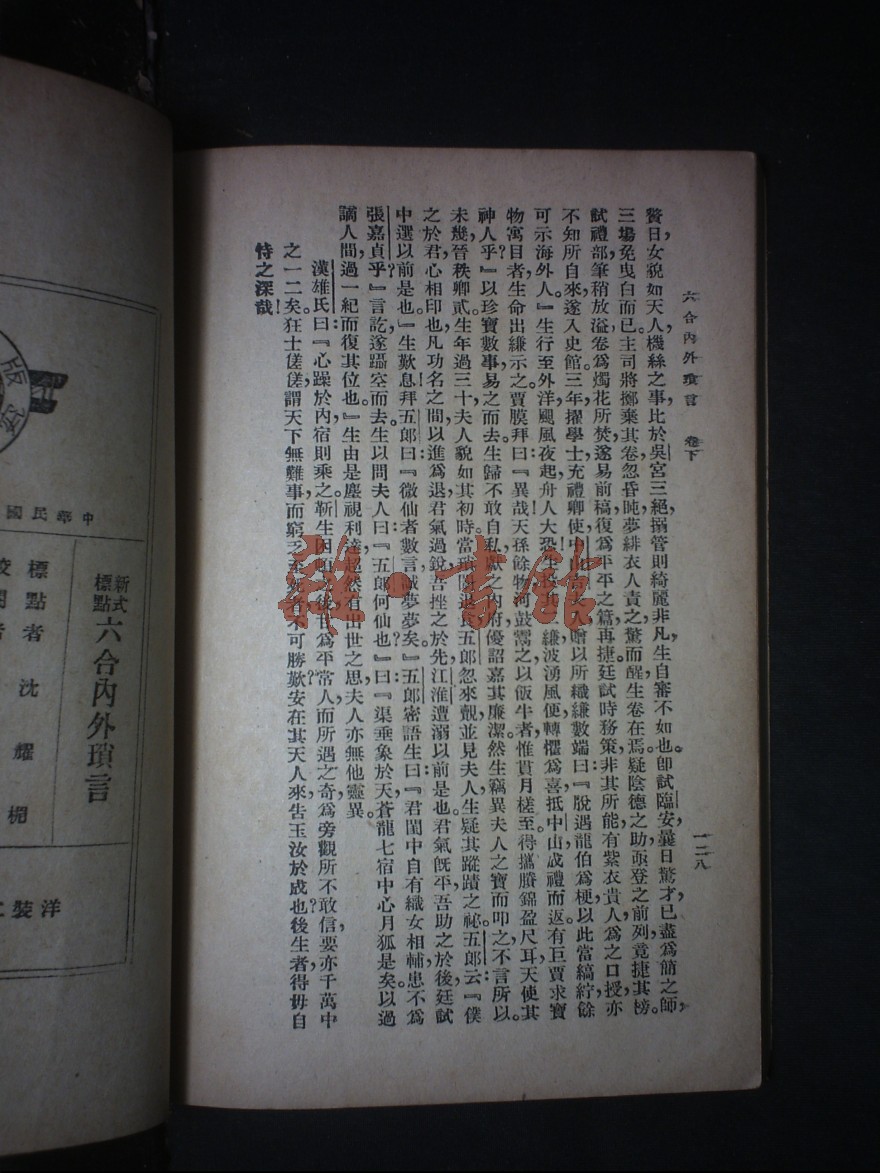 六合內外瑣言 卷下 一二八
贅日女貌如天人,機絲之事比於吳宮三絕,搦管則綺麗非凡,生自審不如也。卽試臨安,曩日驚才,已盡爲簡之師,
三場免曳白而已。主司將擲棄其卷,忽昏盹夢緋衣人責之,驚而醒,生卷在焉。疑陰德之助,亟登之前列,竟捷其榜。
試禮部,筆稍放溢,卷爲燭花所焚,遂易前稿,復爲平平之篇,再捷。廷試時務策,非其所能,有紫衣貴人爲之口授,亦
不知所自來,遂入史館。三年,擢學士,充禮卿,使中山,夫人贈以所織縑數端曰:『脫遇龍伯爲梗,以此當縞紵,餘
可示海外人。』生行至外洋,颶風夜起,舟人大恐,生投其縑,波湧風便,轉懼爲喜,抵中山成禮而返。有巨賈求寶
物寓目者,生命出縑示之,賈膜拜曰:『異哉!天孫餘物,河鼓鬻之以飯牛者,惟貫月槎至,得攜賸錦盈尺耳,天使其
神人乎?』以珍寶數事易之而去。生歸不敢自私,獻之內府,優詔嘉其廉潔。然生竊異夫人之寶而叩之,不言所以。
未幾,晉秩卿貳,生年過三十,夫人貌如其初時。當 退食,五郎忽來覿,並見夫人,生疑其蹤蹟之祕,五郎云:『僕
之於君心相印也,凡功名之間,以進爲退,君氣過銳,吾挫之於先,江淮遭溺以前是也。君氣旣平,吾助之於後,廷試
中選以前是也。』生歎息拜五郎曰:『微仙者數言,誠夢夢矣。』五郎密語生曰:『君閨中自有織女相輔,患不爲
張嘉貞乎?』言訖,遂躡空而去。生以問夫人曰:『五郎何仙也?』曰:『渠垂象於天,蒼龍七宿中心月狐是矣。以過
謫人間,過一紀而復其位也。』生由是塵視利達,超然有出世之思,夫人亦無他靈異。
漢雄氏曰:『心躁於內,宿則乘之。靳生困 之後,甘爲平常人,而所遇之奇,爲旁觀所不敢信,要亦千萬中
之一二矣。狂士傞傞,謂天下無難事,而窮乏至死者,不可勝歎,安在其天人來告玉汝於成也?後生者得毋自
恃之深哉!
版
中華民國
新式標點 六合內外瑣言
標點者 沈耀
校閱者
洋裝